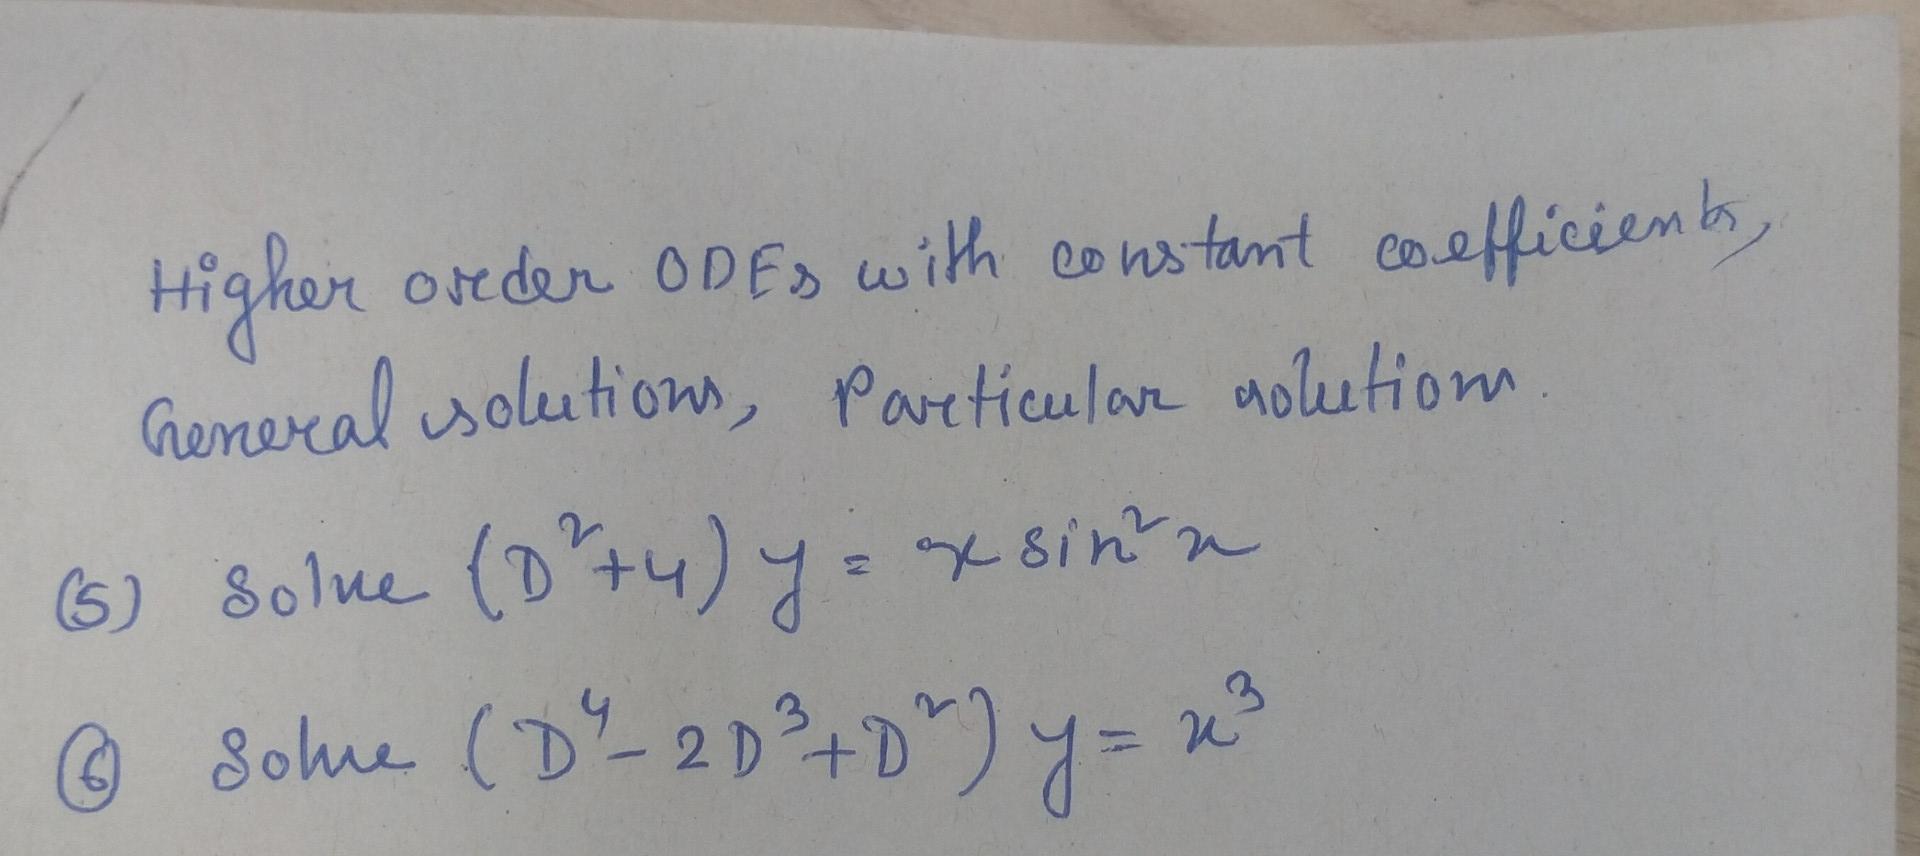 Higher order ODEs with constant coefficients,
General solutions, Particular solutions.
(5) Solve (D²+4) y = x sin² x
⑥ Solve (D⁴- 2D³+D²) y = x³